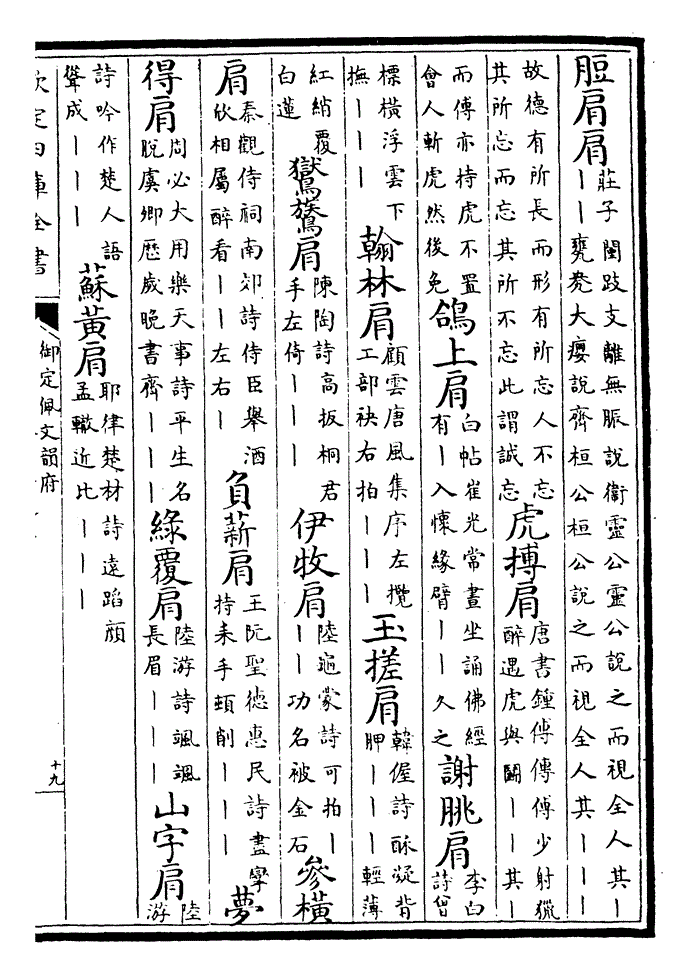 脰肩肩莊子闉跂支離無脤說衛靈公靈公說之而視全人其丨丨丨甕㼜大癭說齊桓公桓公說之而視全人其丨丨
故德有所長而形有所忘人不忘其所忘而忘其所不忘此謂誠忘虎搏肩唐書鍾傅傳傅少射獵醉遇虎與鬭丨丨其丨
而傅亦持虎不置會人斬虎然後免鴿上肩白帖崔光常晝坐誦佛經有丨入懷緣臂丨丨久之謝朓肩李白詩曾
標橫浮雲下撫丨丨丨翰林肩顧雲唐風集序左攬工部袂右拍丨丨丨玉搓肩韓偓詩酥凝背胛丨丨丨輕薄
紅綃覆白蓮鸑鷟肩陳陶詩高扳桐君手左倚丨丨丨伊牧肩陸龜蒙詩可拍丨丨丨功名被金石參橫
肩秦觀侍祠南郊詩侍臣舉酒欣相屬醉看丨丨左右丨負薪肩王阮聖德惠民詩盡學持耒手頓削丨丨丨夢
得肩周必大用樂天事詩平生名脫虞卿歷歲晚書齊丨丨丨綠覆肩陸游詩颯颯長眉丨丨丨山字肩陸游
詩吟作楚人語聳成丨丨丨蘇黃肩耶律楚材詩遠蹈顏孟轍近比丨丨丨
欽定四庫全書
御定佩文韻府
十九